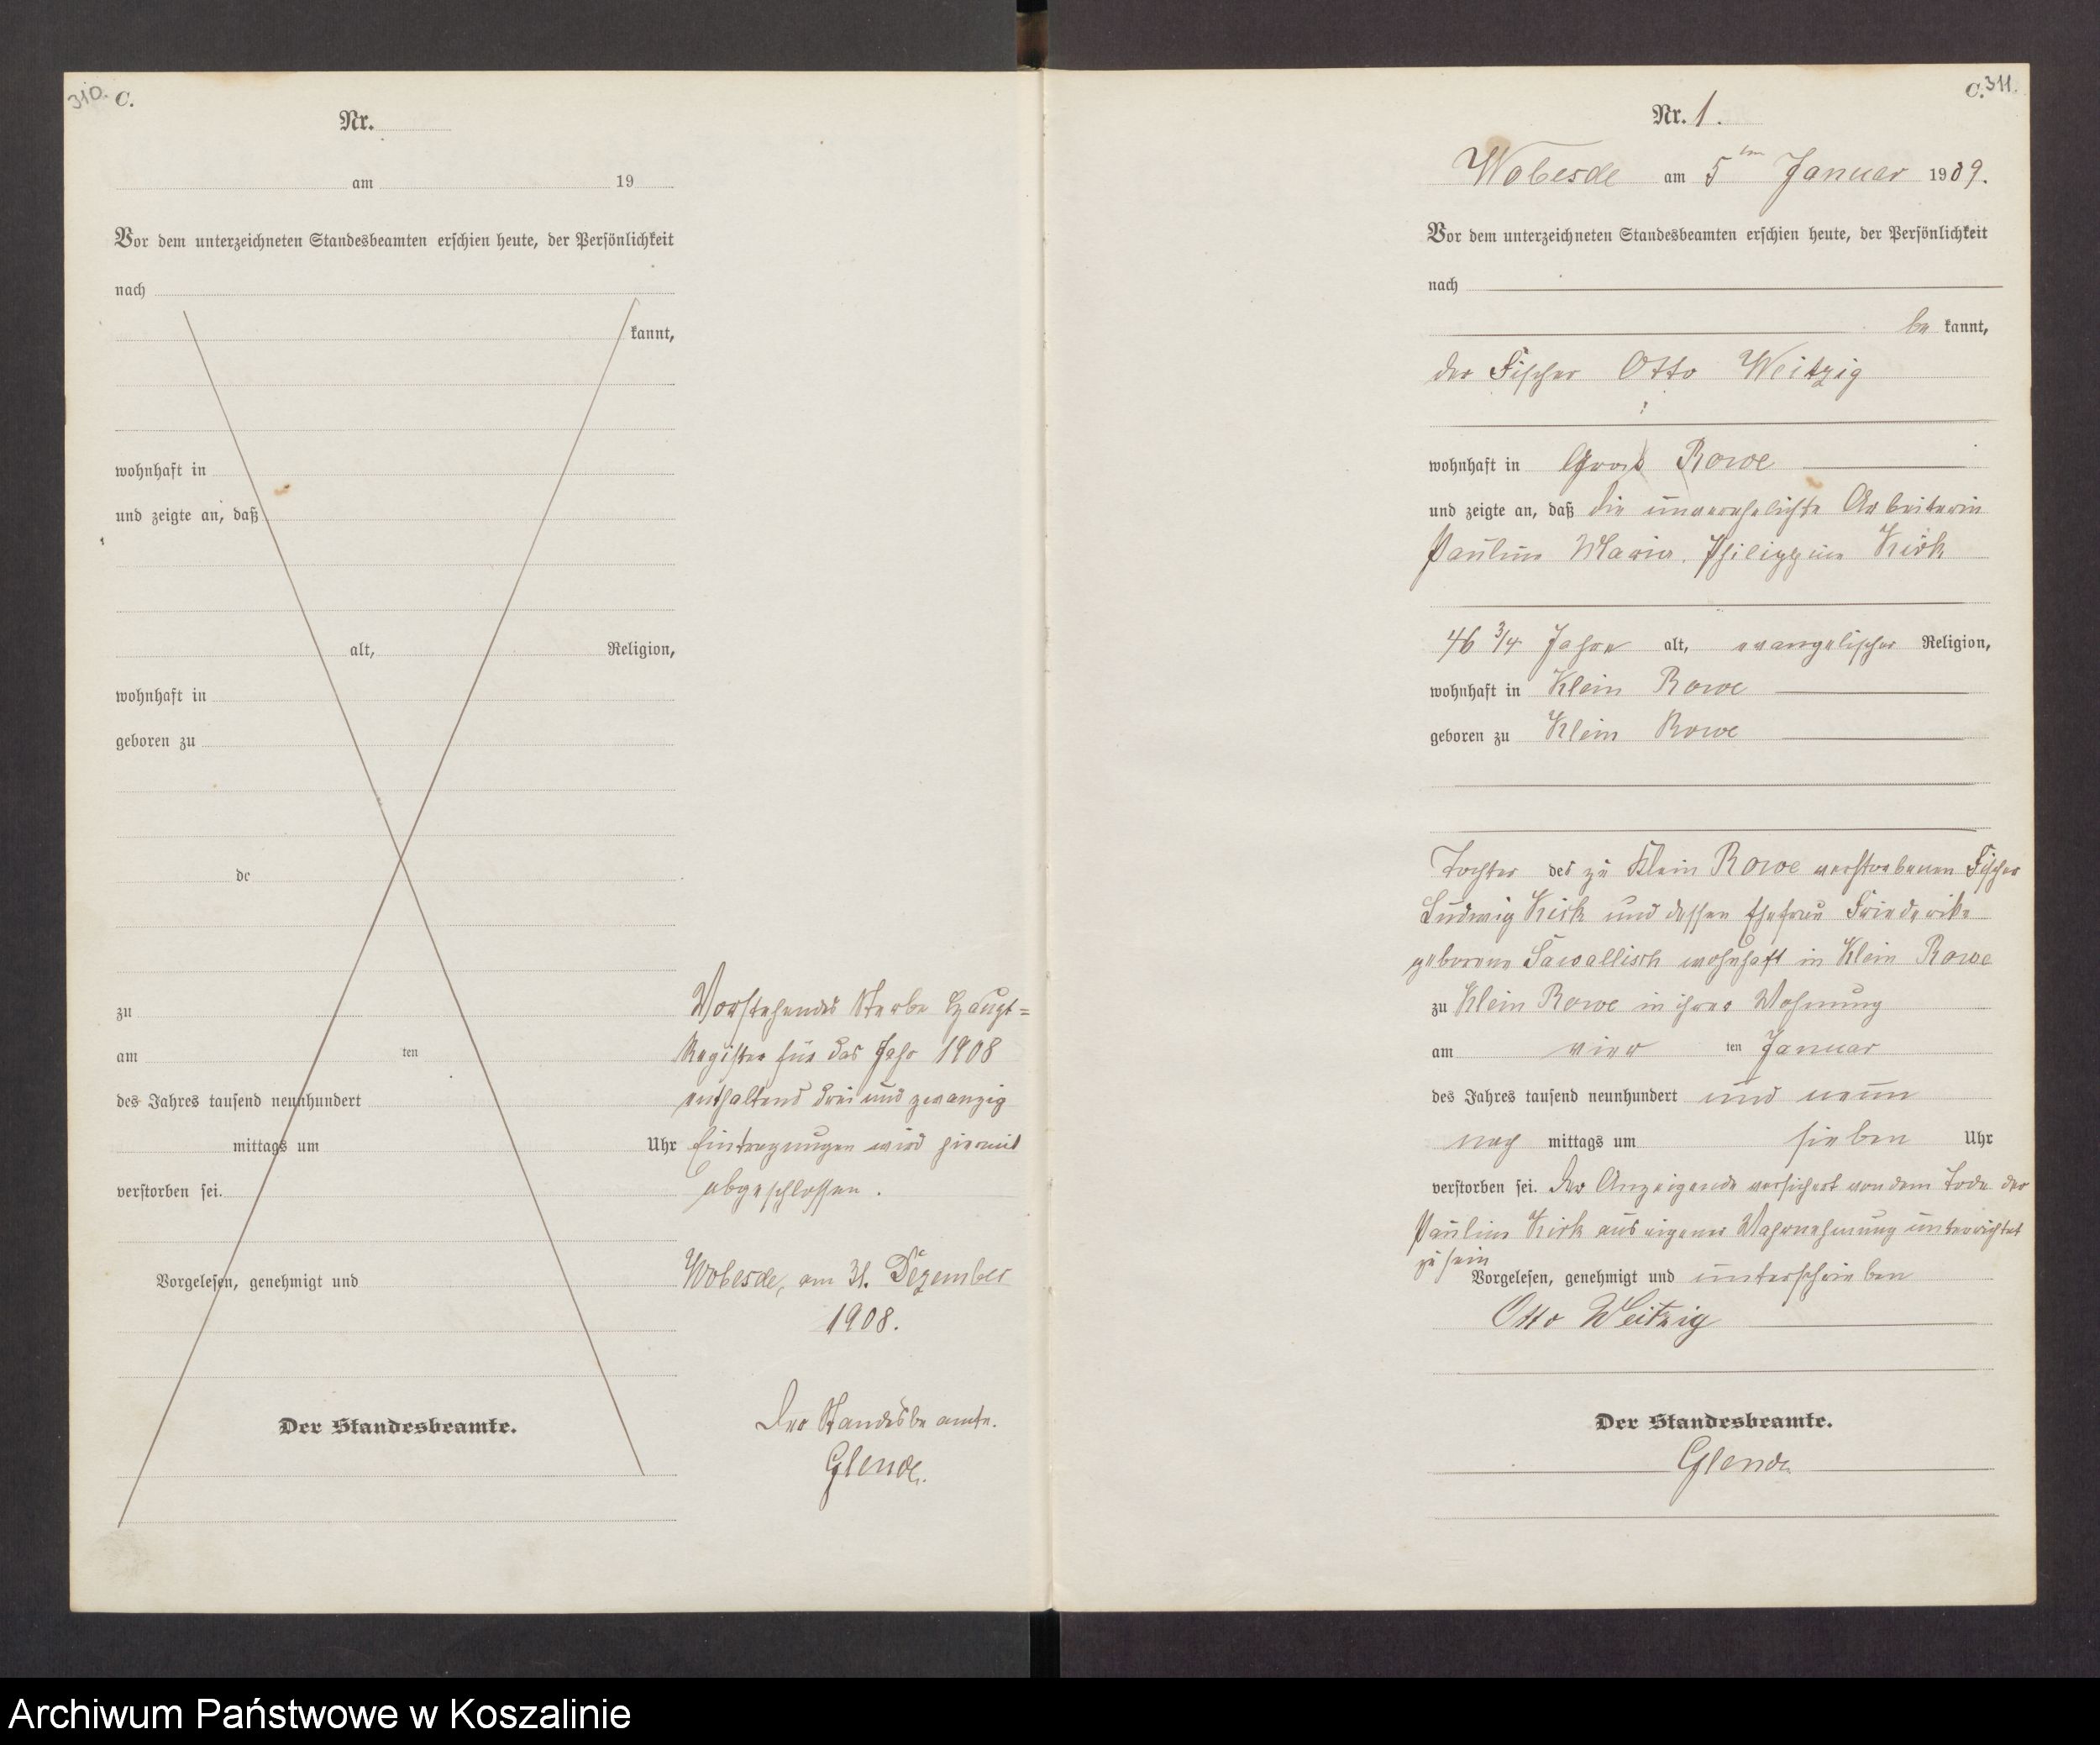 310.
C.
Nr.
am 19
Vor dem unterzeichneten Standesbeamten erschien heute, der Persönlichkeit
nach
kannt,
wohnhaft in
und zeigte an, daß
alt, Religion,
wohnhaft in
geboren zu
de
zu
am ten
des Jahres tausend neunhundert
mittags um Uhr
verstorben sei.
Vorgelesen, genehmigt und
Der Standesbeamte.
Vorstehendes Sterbe Haupt=
Register für das Jahr 1908
enthaltend drei und zwanzig
Eintragungen wird hiermit
abgeschlossen.
Wobesde, am 31. Dezember
1908.
Der Standesbeamte.
Glende.
C. 311.
Nr. 1.
Wobesde am 5ten Januar 1909.
Vor dem unterzeichneten Standesbeamten erschien heute, der Persönlichkeit
nach
be kannt,
der Fischer Otto Weitzig
wohnhaft in Gross Rowe
und zeigte an, daß die unverehelichte Arbeiterin
Pauline Marie Philippine Kirk
46 3/4 Jahre alt, evangelischer Religion,
wohnhaft in Klein Rowe
geboren zu Klein Rowe
Tochter des zu Klein Rowe verstorbenen Fischer
Ludwig Kirk und dessen Ehefrau Friederike
geborene Sawallisch wohnhaft in Klein Rowe
zu Klein Rowe in ihrer Wohnung
am vier ten Januar
des Jahres tausend neunhundert und neun
nach mittags um sieben Uhr
verstorben sei. Der Anzeigende versichert von dem Tode der
Pauline Kirk aus eigener Wahrnehmung unterrichtet
zu sein
Vorgelesen, genehmigt und unterschrieben
Otto Weitzig
Der Standesbeamte.
Glende
Archiwum Państwowe w Koszalinie